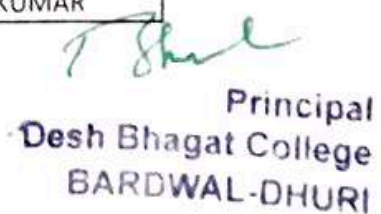 KUMAR
Principal
Desh Bhagat College
BARDWAL-DHURI